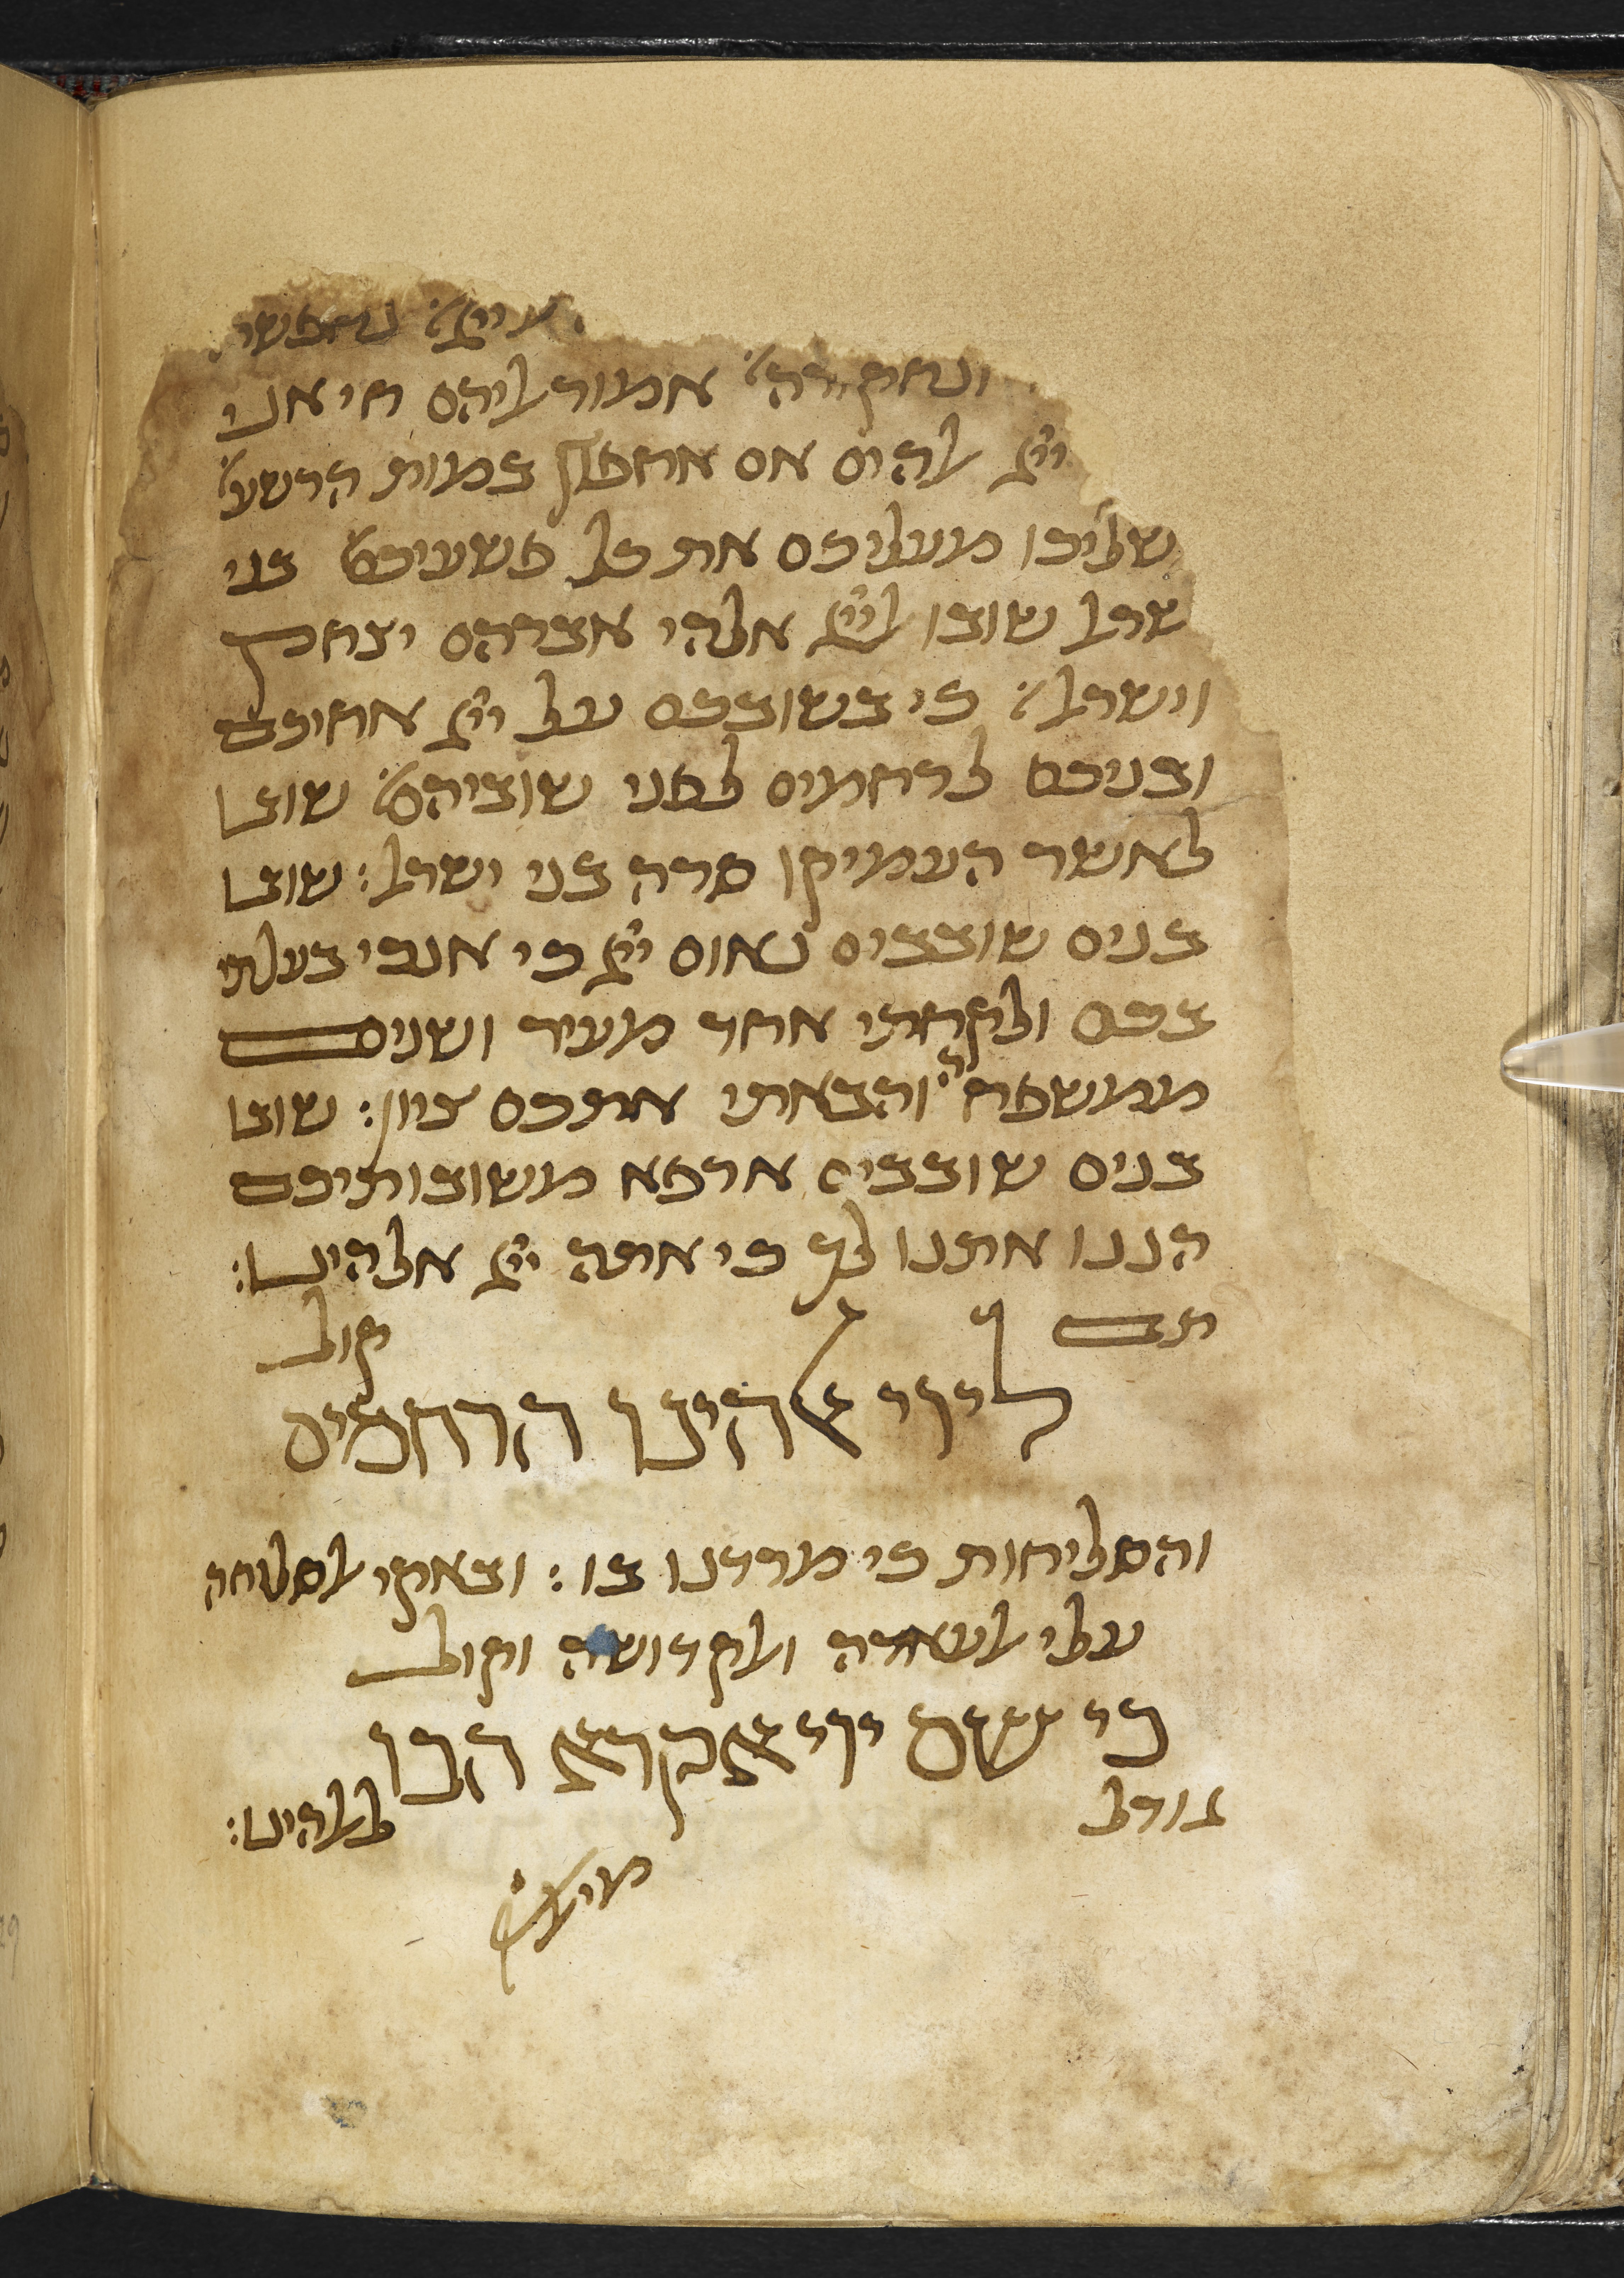 ע ייי׃ נחפשי
ונחקרה׃ אמור ליהם חי אני
ייי להים אם אחפץ במות הרשע׃
שליכו מעליכם את כל פשעיכם׃ בני
שרל שובו לייי אלהי אברהם יצחק
וישרל׃ כי בשובכם על ייי אחיכם
ובניכם לרחמים לפני שוביהם׃ שובו
לאשר העמיקו סרה בני ישרל׃ שובו
בנים שובבים נאום ייי כי אנכי בעלתי
בכם ולקחתי אחד מעיר ושנים
ממשפחה והבאתי אתכם ציון׃ שובו
בנים שובבים ארפא משובותיכם
הננו אתנו לך כי אתה ייי אלהינו׃
תם קול
ליוי אלהינו הרחמים
והסליחות כי מרדנו בו׃ ובאקי לסליחה
עלי לעאדה ולקדושה וקול
כי שם יוי אקרא הבו
גודל לאלהינו׃